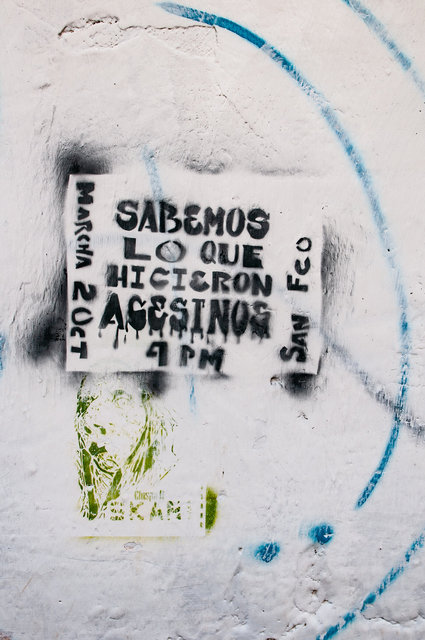 MARCHA 2 OCT
SABEMOS
LO QUE
HICIERON
ACESINOS
4 PM
SAN FCO